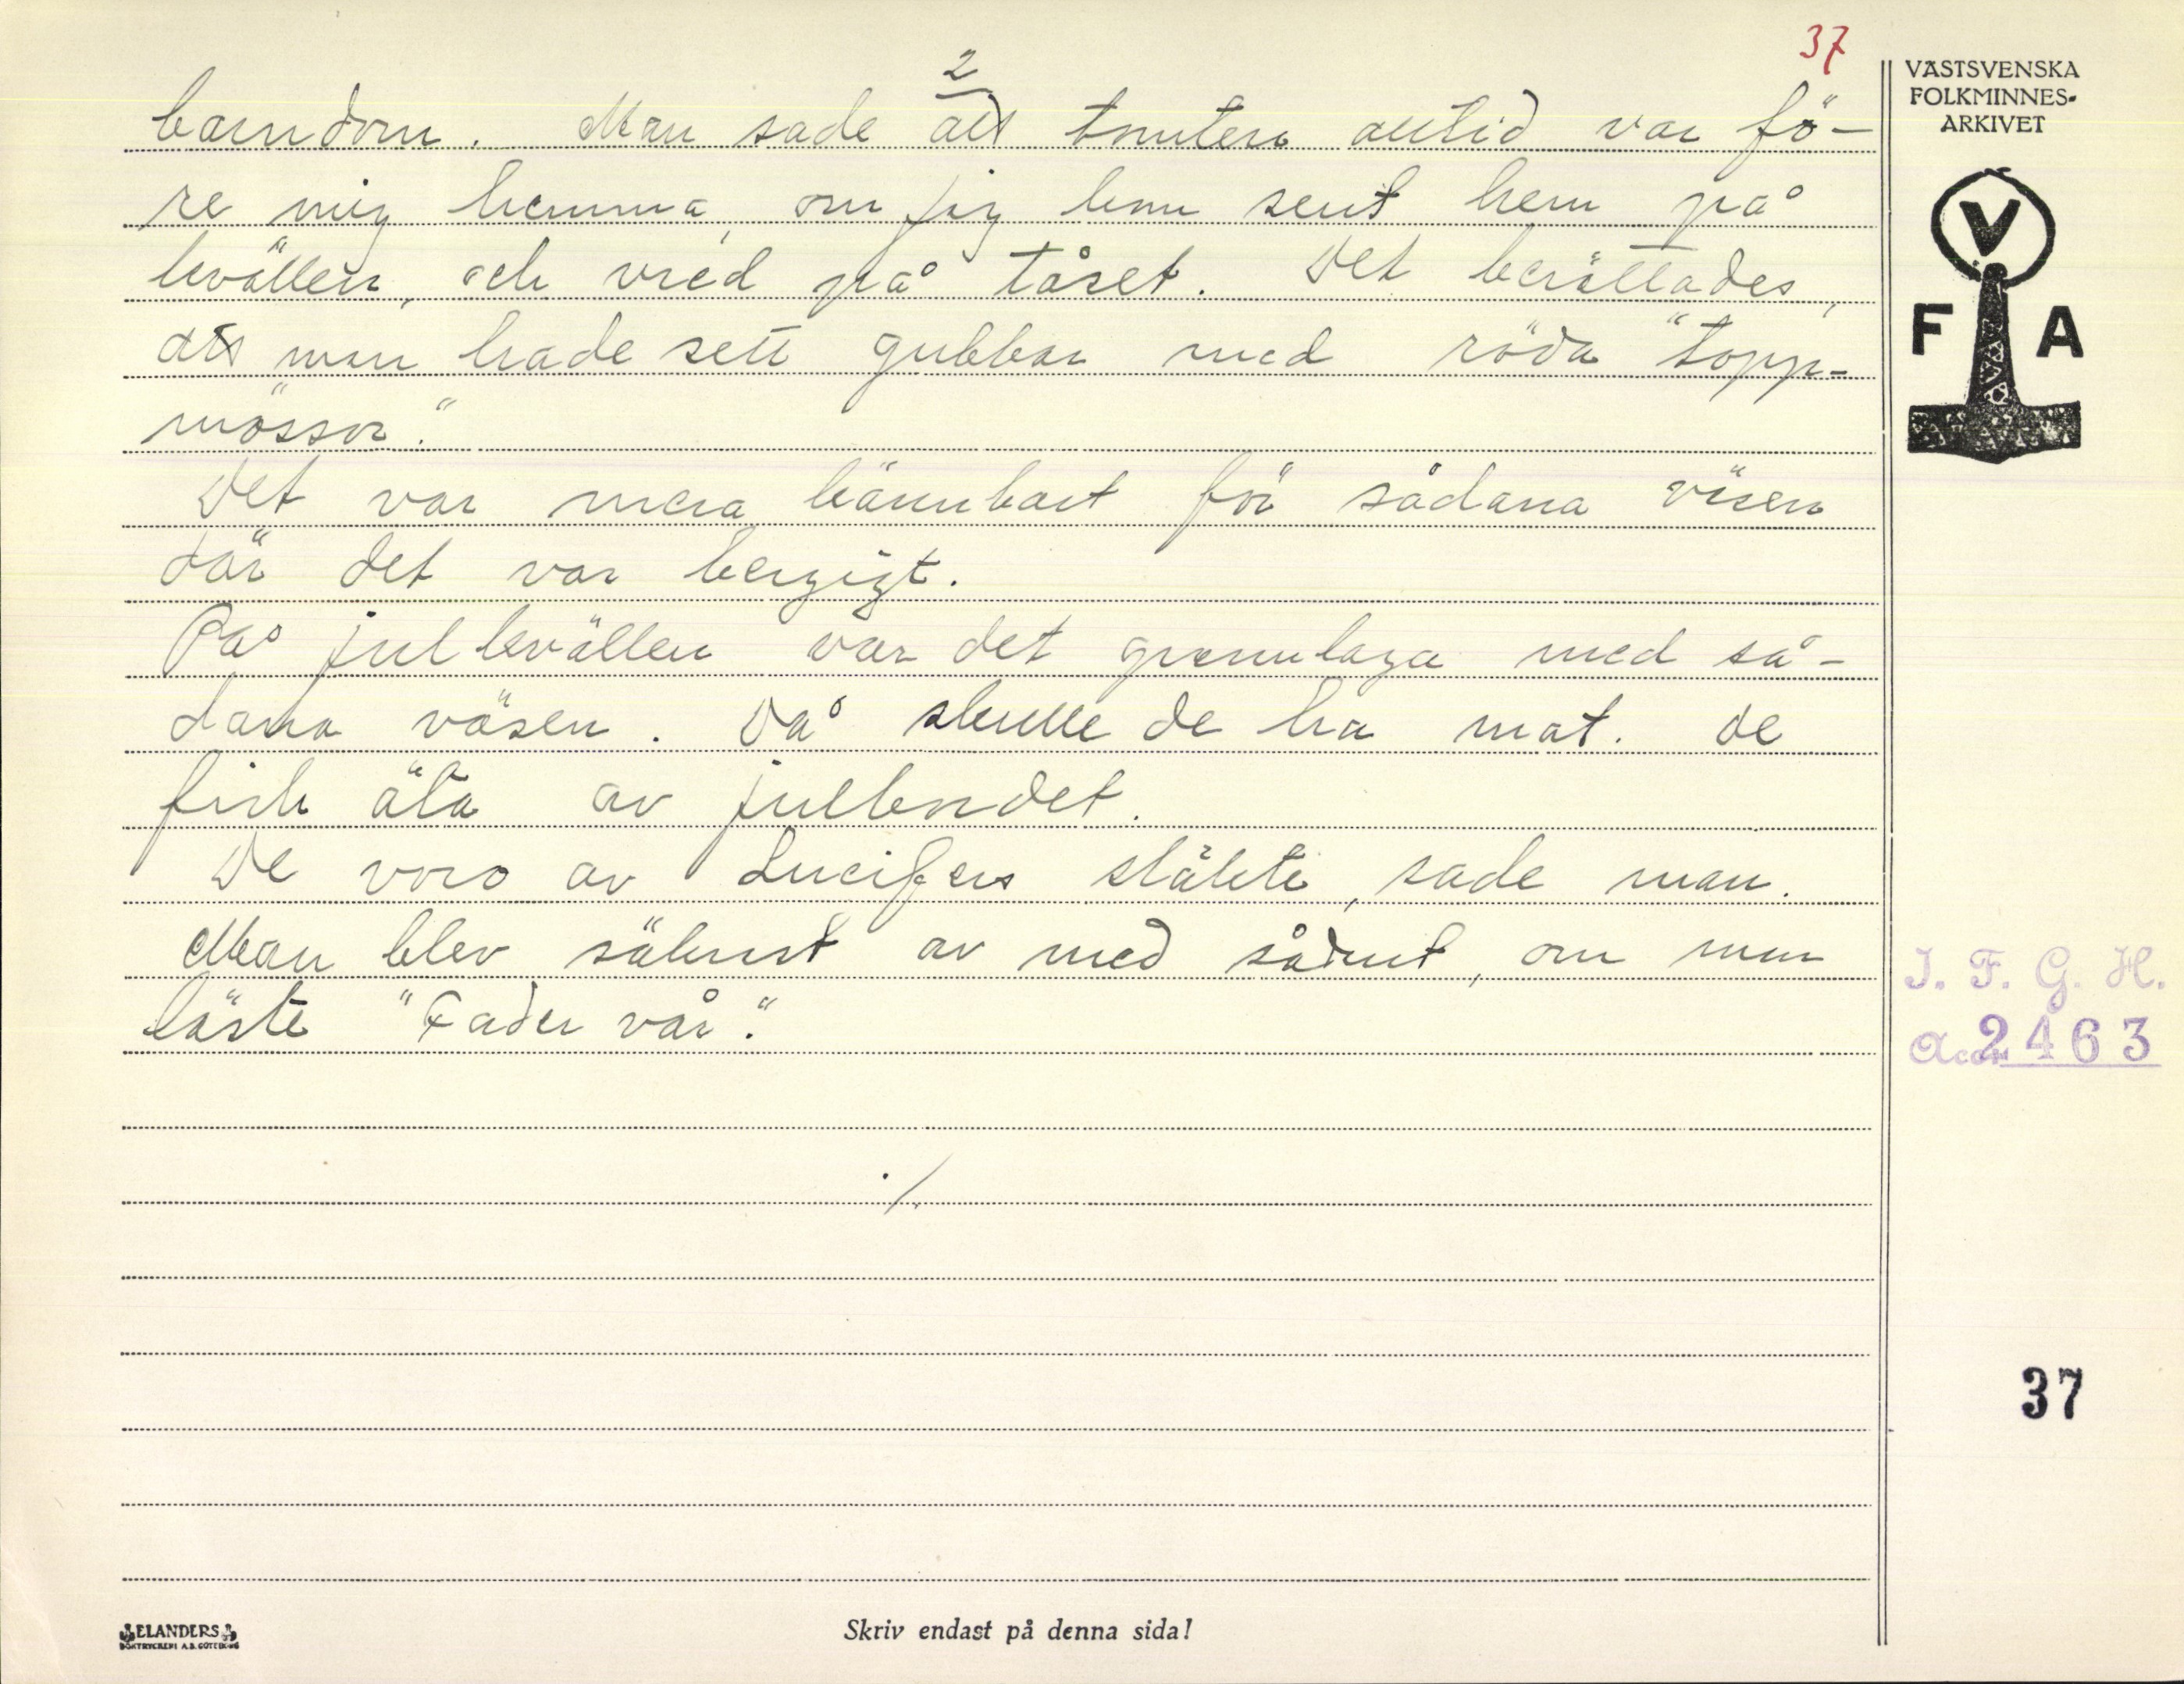 37
2
barndom. Man sade att tomten alltid var fö-
re mig hemma, om jag kom sent hem på
kvällen, och vred på låset. Det berättades,
att man hade sett gubbar med röda "topp-
mössor."
Det var mera kännbart för sådana väsen
där det var bergigt.
På julkvällen var det grannlaga med så-
dana väsen. Då skulle de ha mat. De
fick äta av julbordet.
De voro av Lucifers släkte, sade man.
Man blev säkrast av med sådant, om man
läste "Fader vår."
./.
VÄSTSVENSKA
FOLKMINNES-
ARKIVET
V
F A
I. F. G. H.
Acc. 2463
37
ELANDERS
BOKTRYCKERI A.B. GÖTEBORG
Skriv endast på denna sida!